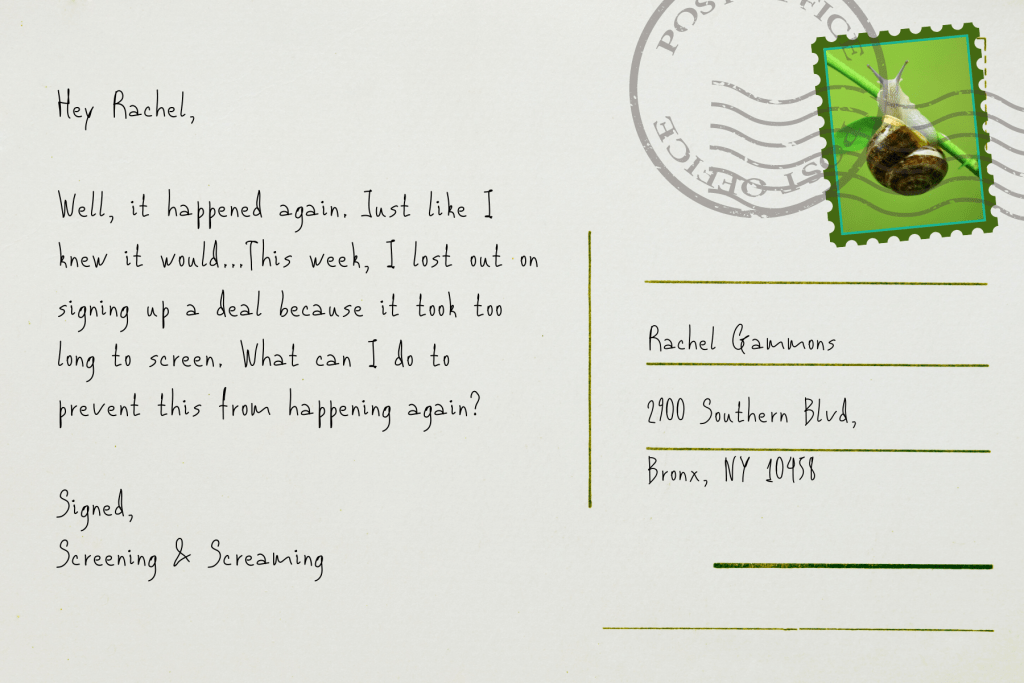 POST OFFICE
POST OFFICE
Hey Rachel,
Well, it happened again. Just like I
knew it would...This week, I lost out on
signing up a deal because it took too
long to screen. What can I do to
prevent this from happening again?
Signed,
Screening & Screaming
Rachel Gammons
2900 Southern Blvd,
Bronx, NY 10458